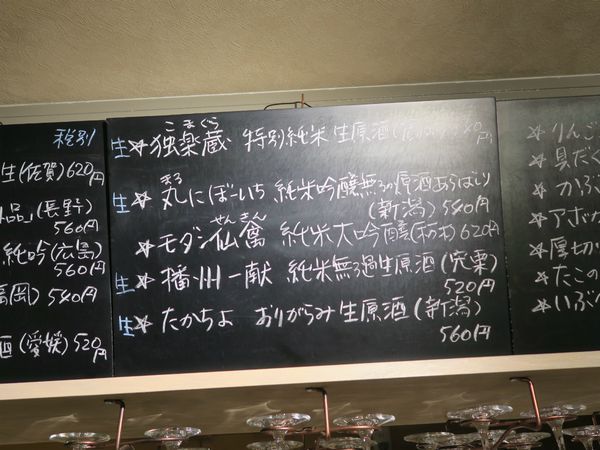 税別
生(佐賀)620円
品」(長野)
560円
純吟(広島)
560円
岡) 540円
酒(愛媛)520円
こまぐら
生☆独楽蔵 特別純米生原酒(
まる
生☆丸にぼーいち 純米吟醸無ろ原酒あらばしり
(新潟)540円
せんきん
☆モダン仙禽 純米大吟醸(栃木)620円
生☆播州一献 純米無ろ過生原酒(宍粟)
520円
生☆たかちよ おりがらみ生原酒(新潟)
560円
☆りんご
☆具だく
☆かぶ
☆アボカ
☆厚切
☆たこの
☆いぶ